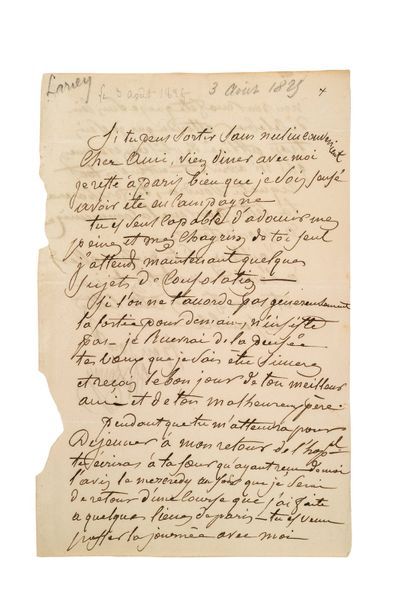 Larrey le 3 août 1825 3 Août 1825
Si tu peux sortir sans nul inconvénient
Cher Ami, viens diner avec moi
je reste à paris bien que je sois sensé
avoir été en Campagne
tu es seul Capable d'adoucir mes
peines et mes Chagrins de toi seul
j'attends maintenant quelques
sujets de Consolation —
Si l'on ne t'accorde pas généreusement
la sortie pour demain, n'insiste
pas — je
tes vœux que je sais être sincères
et reçois le bon jour de ton meilleur
ami et de ton malheureux père.
Pendant que tu m'attendras pour
Dejeuner à mon retour de l'hop.al
tu écriras à ta sœur qu'ayant reçu de moi
l'avis le mercredy au soir que je serai
de retour d'une Course que j'ai faite
a quelques lieues de paris — tu es venu
passer la journée avec moi